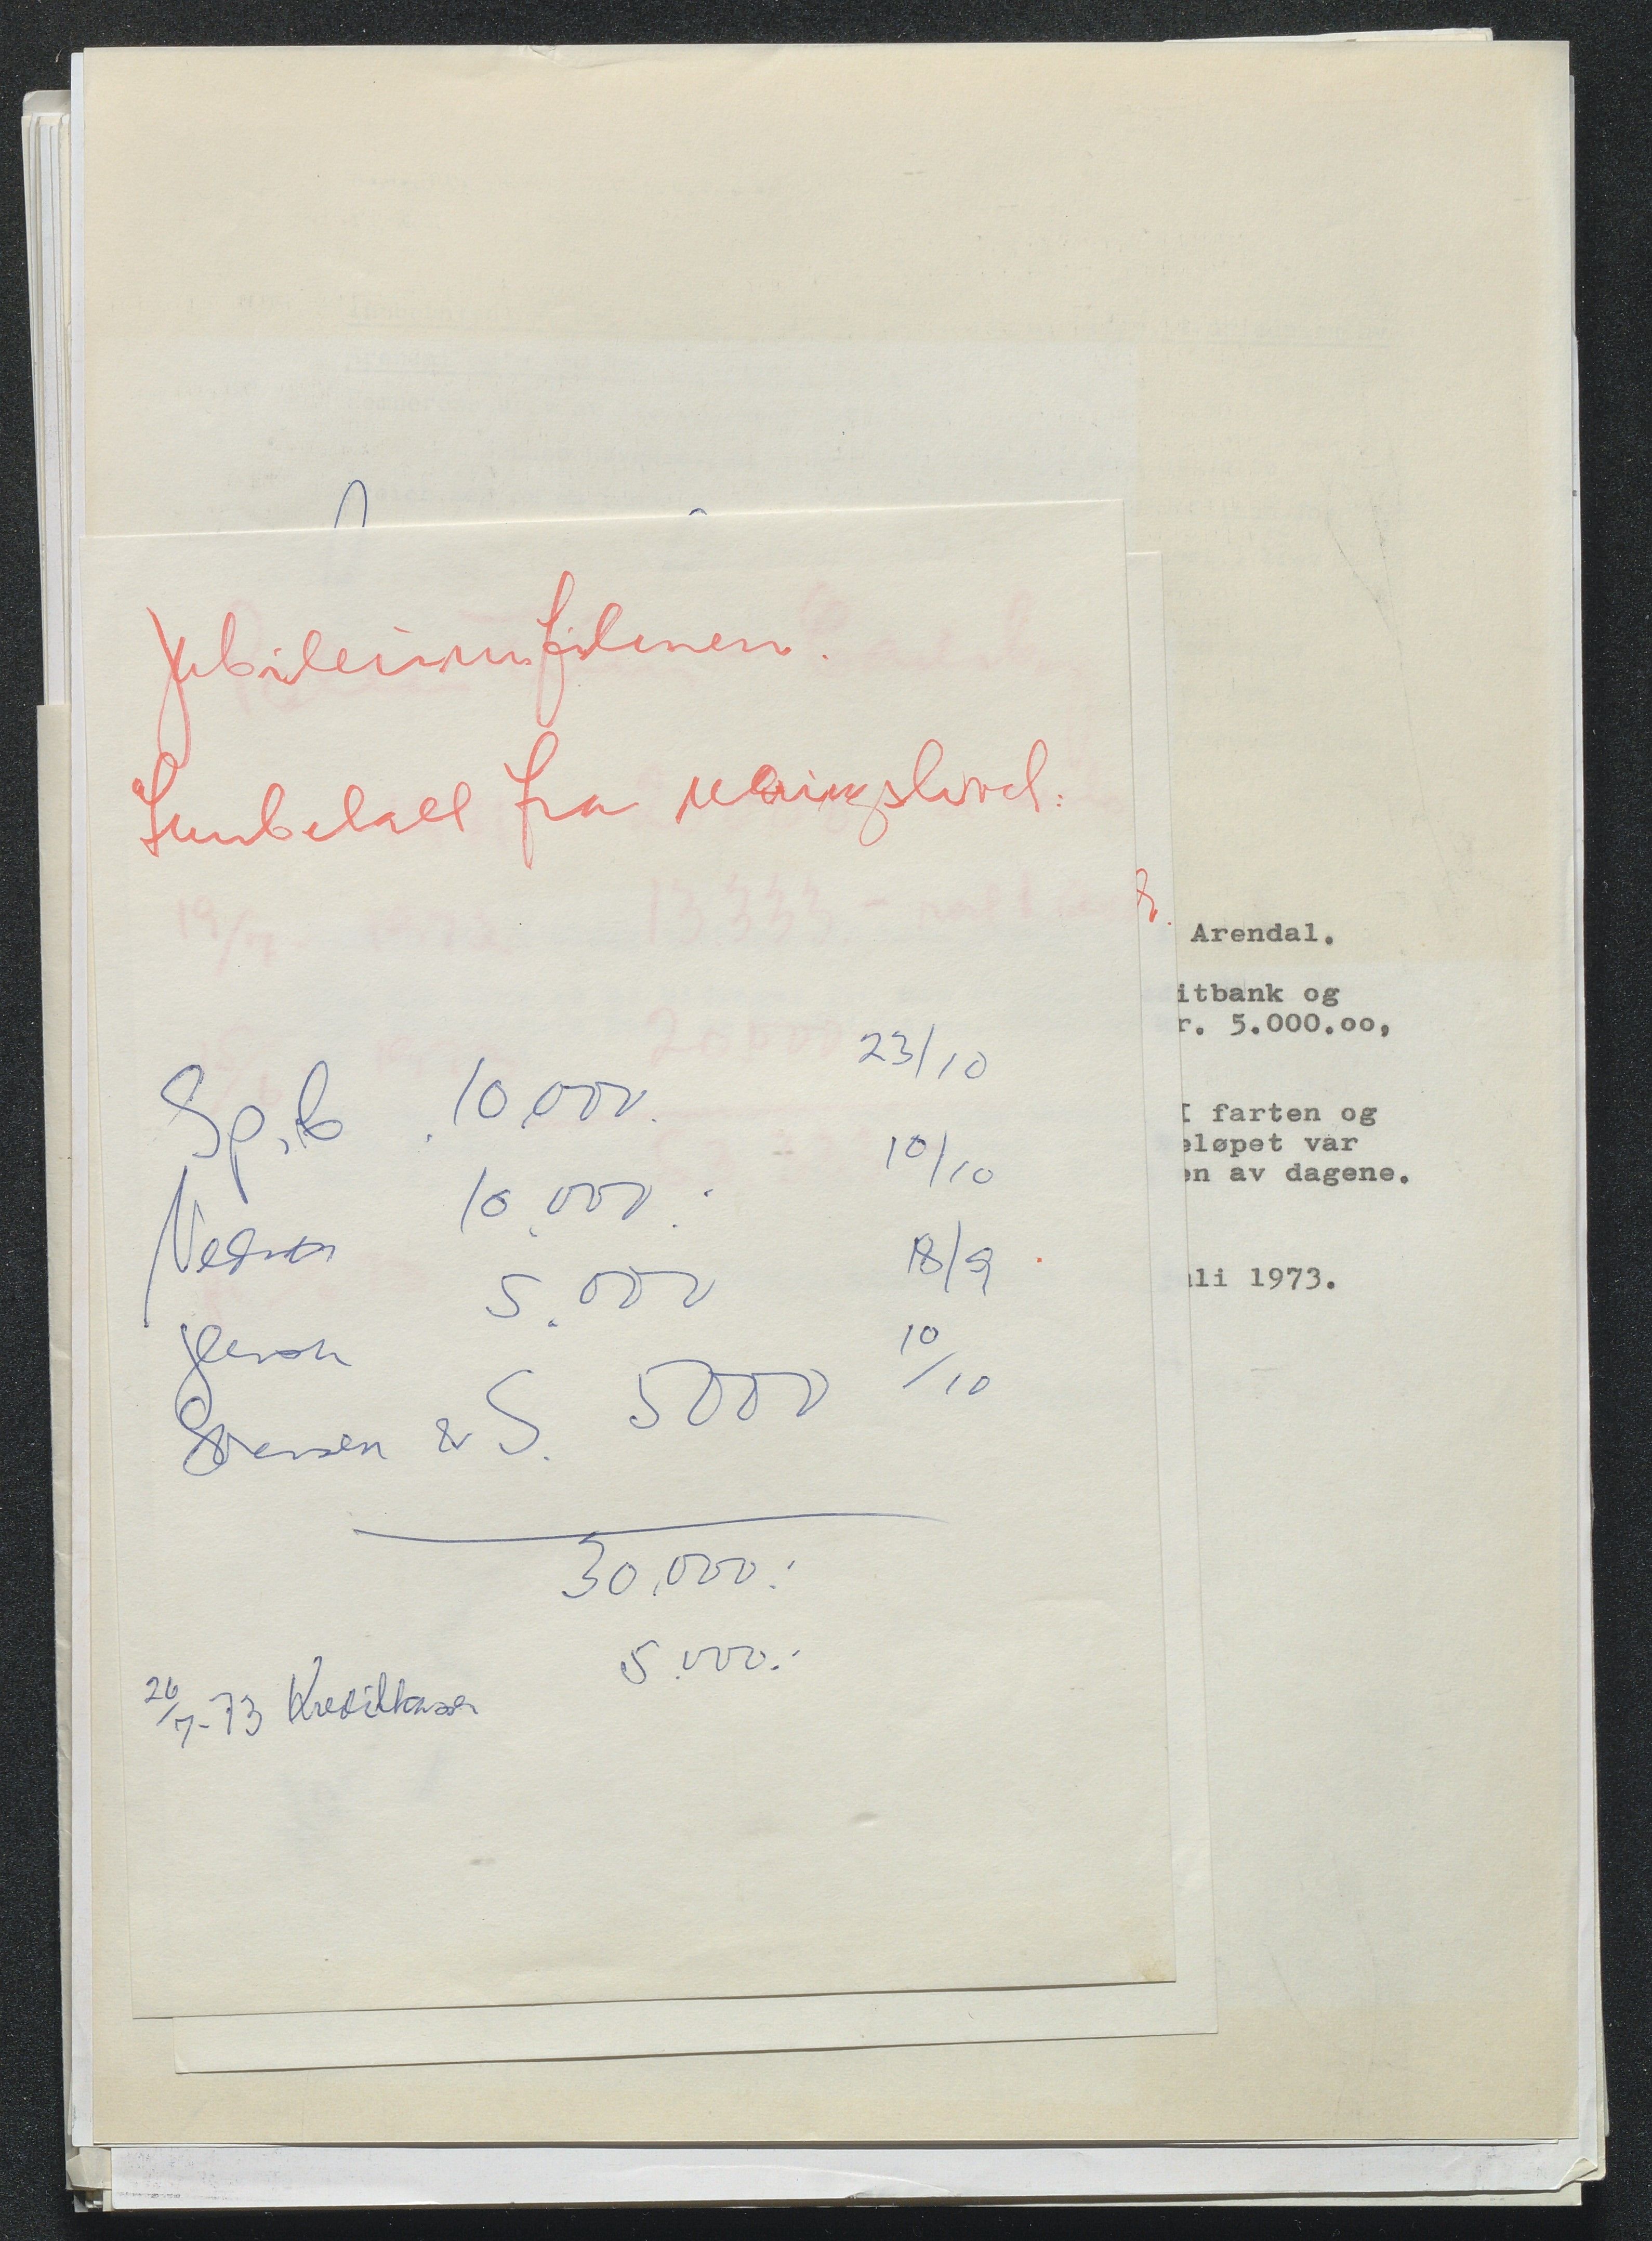 Jubileumsfilmen.
Innbetalt fra næringslivet:
Sp.b. 10.000. 23/10
Nednes 10.000.- 10/10
Jensen 5.000 18/9
Sørensen & S. 5000 10/10
30.000.-
26/7-73 Kreditkassen 5.000.-
Arendal.
itbank og
r. 5.000.oo,
I farten og
eløpet var
en av dagene.
li 1973.